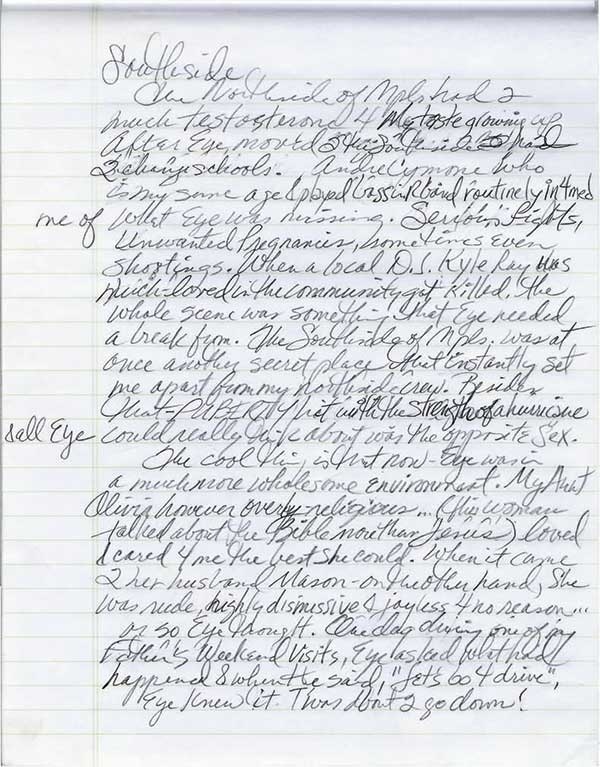 Southside
The Northside of Mpls had 2
much testosterone 4 My taste growing up
After Eye moved 2 the Southside & had
2 change schools. André Cymone who
is my same age & played bass in R band routinely in4med
me of what Eye was missing. Serious Fights,
Unwanted Pregnancies, sometimes even
shootings. When a local D.J. Kyle Ray was
much-loved in the community got killed, the
whole scene was something that Eye needed
a break from. The Southside of Mpls. was at
once another secret place that instantly set
me apart from my northside crew. Besides
that - PUBERTY hit with the strength of a hurricane
& all Eye could really think about was the opposite sex.
The cool thing is that now - Eye was in
a much more wholesome environment. My Aunt
Olivia however overly religious... (this woman
talked about the Bible more than Jesus) loved
& cared 4 me the best she could. When it came
2 her husband Mason - on the other hand, she
was rude, highly dismissive & joyless 4 no reason...
or so Eye thought. One day during one of my
Father's Weekend Visits, Eye asked what had
happened & when he said, "Let's go 4 drive",
Eye knew it. Twas about 2 go down!